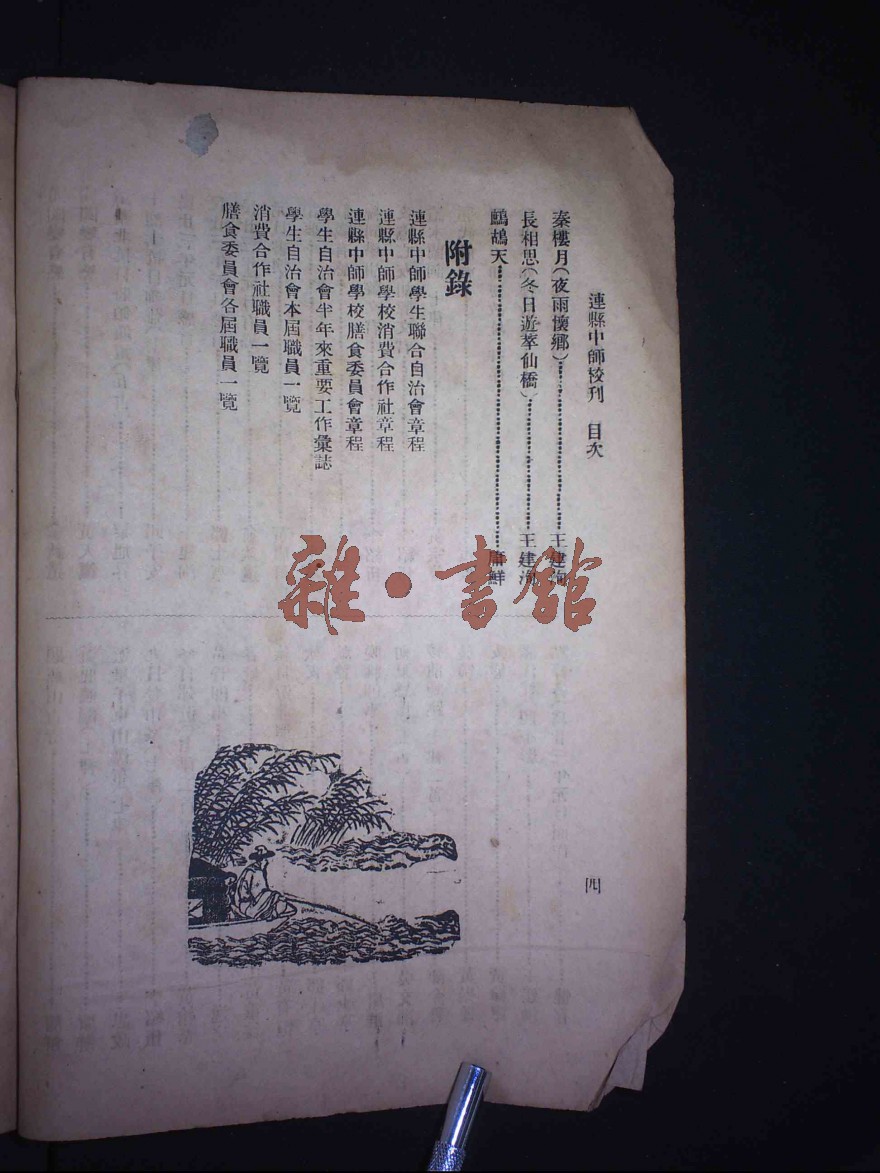 連縣中師校刊 目次
秦樓月(夜雨懷鄉)……王建
長相思(冬日遊萃仙橋)……王建
鷓鴣天……鮮
附錄
連縣中師學生聯合自治會章程
連縣中師學校消費合作社章程
連縣中師學校膳食委員會章程
學生自治會半年來重要工作彙誌
學生自治會本屆職員一覽
消費合作社職員一覽
膳食委員會各屆職員一覽
四
雜·書館